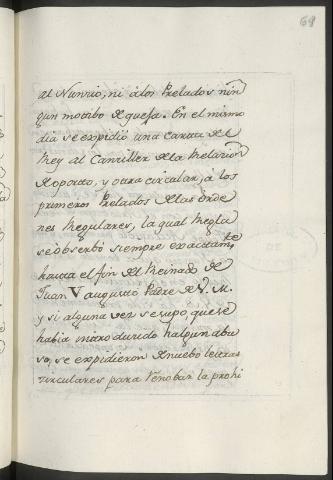 68
al Nunzio, ni á los Prelados nin
gun motibo de quexa. En el mismo
dia se expidió una carta de el
Rey al Canziller de la Relacion
de oporto, y otra circular, á los
primeros Prelados de las orde
nes Regulares, la qual Regla
se observó siempre exactam.te
hasta el fin de Reinado de
Juan V augusto Padre de V. M.
y si alguna vez se supo, que se
habia introducido halgun abu
so, se expidieron de nuebo letras
circulares para renobar la prohi